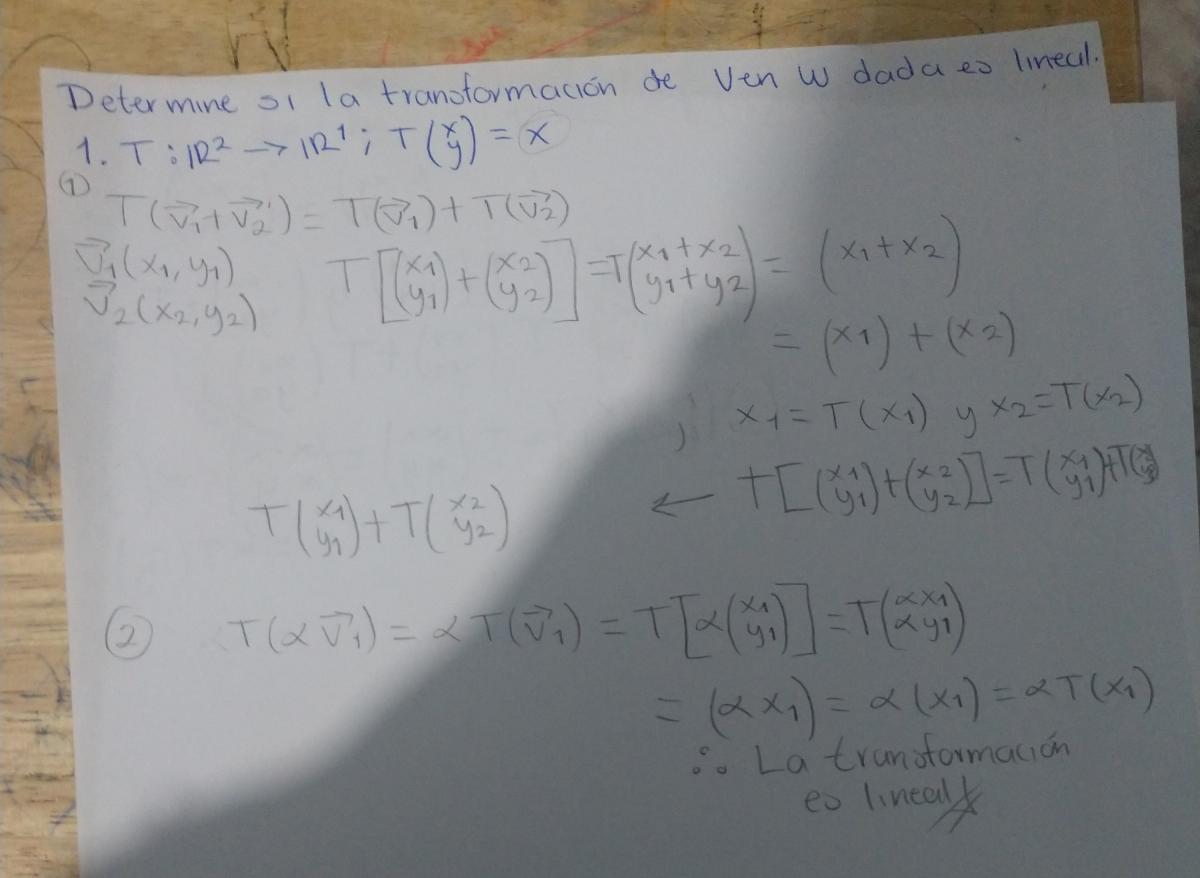 Determine si la transformación de V en W dada es lineal.
1. T: ℝ² → ℝ¹; T(x y) = x
① T(v⃗₁+v⃗₂) = T(v⃗₁) + T(v⃗₂)
v⃗₁(x₁, y₁) T[(x₁ y₁) + (x₂ y₂)] = T(x₁+x₂ y₁+y₂) = (x₁+x₂)
v⃗₂(x₂, y₂)
= (x₁) + (x₂)
, x₁ = T(x₁) y x₂ = T(x₂)
← T[(x₁ y₁) + (x₂ y₂)] = T(x₁ y₁) + T
T(x₁ y₁) + T(x₂ y₂)
② T(αv⃗₁) = αT(v⃗₁) = T[α(x₁ y₁)] = T(αx₁ αy₁)
= (αx₁) = α(x₁) = αT(x₁)
∴ La transformación
es lineal